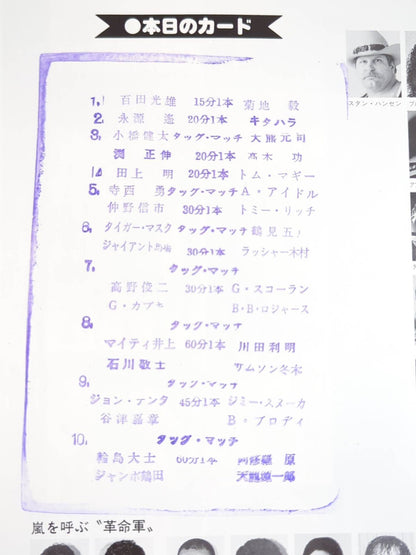 ●本日のカード
スタン・ハンセン
1. 百田光雄 15分1本 菊地 毅
2. 永源 遙 20分1本 キタハラ
3. 小橋健太 タッグ・マッチ 大熊元司
渕 正伸 20分1本 高木 功
4. 田上 明 20分1本 トム・マギー
5. 寺西 勇 タッグ・マッチ A・アイドル
仲野信市 30分1本 トミー・リッチ
6. タイガー・マスク タッグ・マッチ 鶴見五
ジャイアント馬場 30分1本 ラッシャー木村
7. タッグ・マッチ
高野俊二 30分1本 G・スコーラン
G・カブキ B・B・ロジャース
8. タッグ・マッチ
マイティ井上 60分1本 川田利明
石川敬士 サムソン冬木
9. タッグ・マッチ
ジョン・テンタ 45分1本 ジミー・スヌーカ
谷津嘉章 B・ブロディ
10. タッグ・マッチ
輪島大士 60分1本 阿修羅 原
ジャンボ鶴田 天龍源一郎
嵐を呼ぶ〝革命軍〟